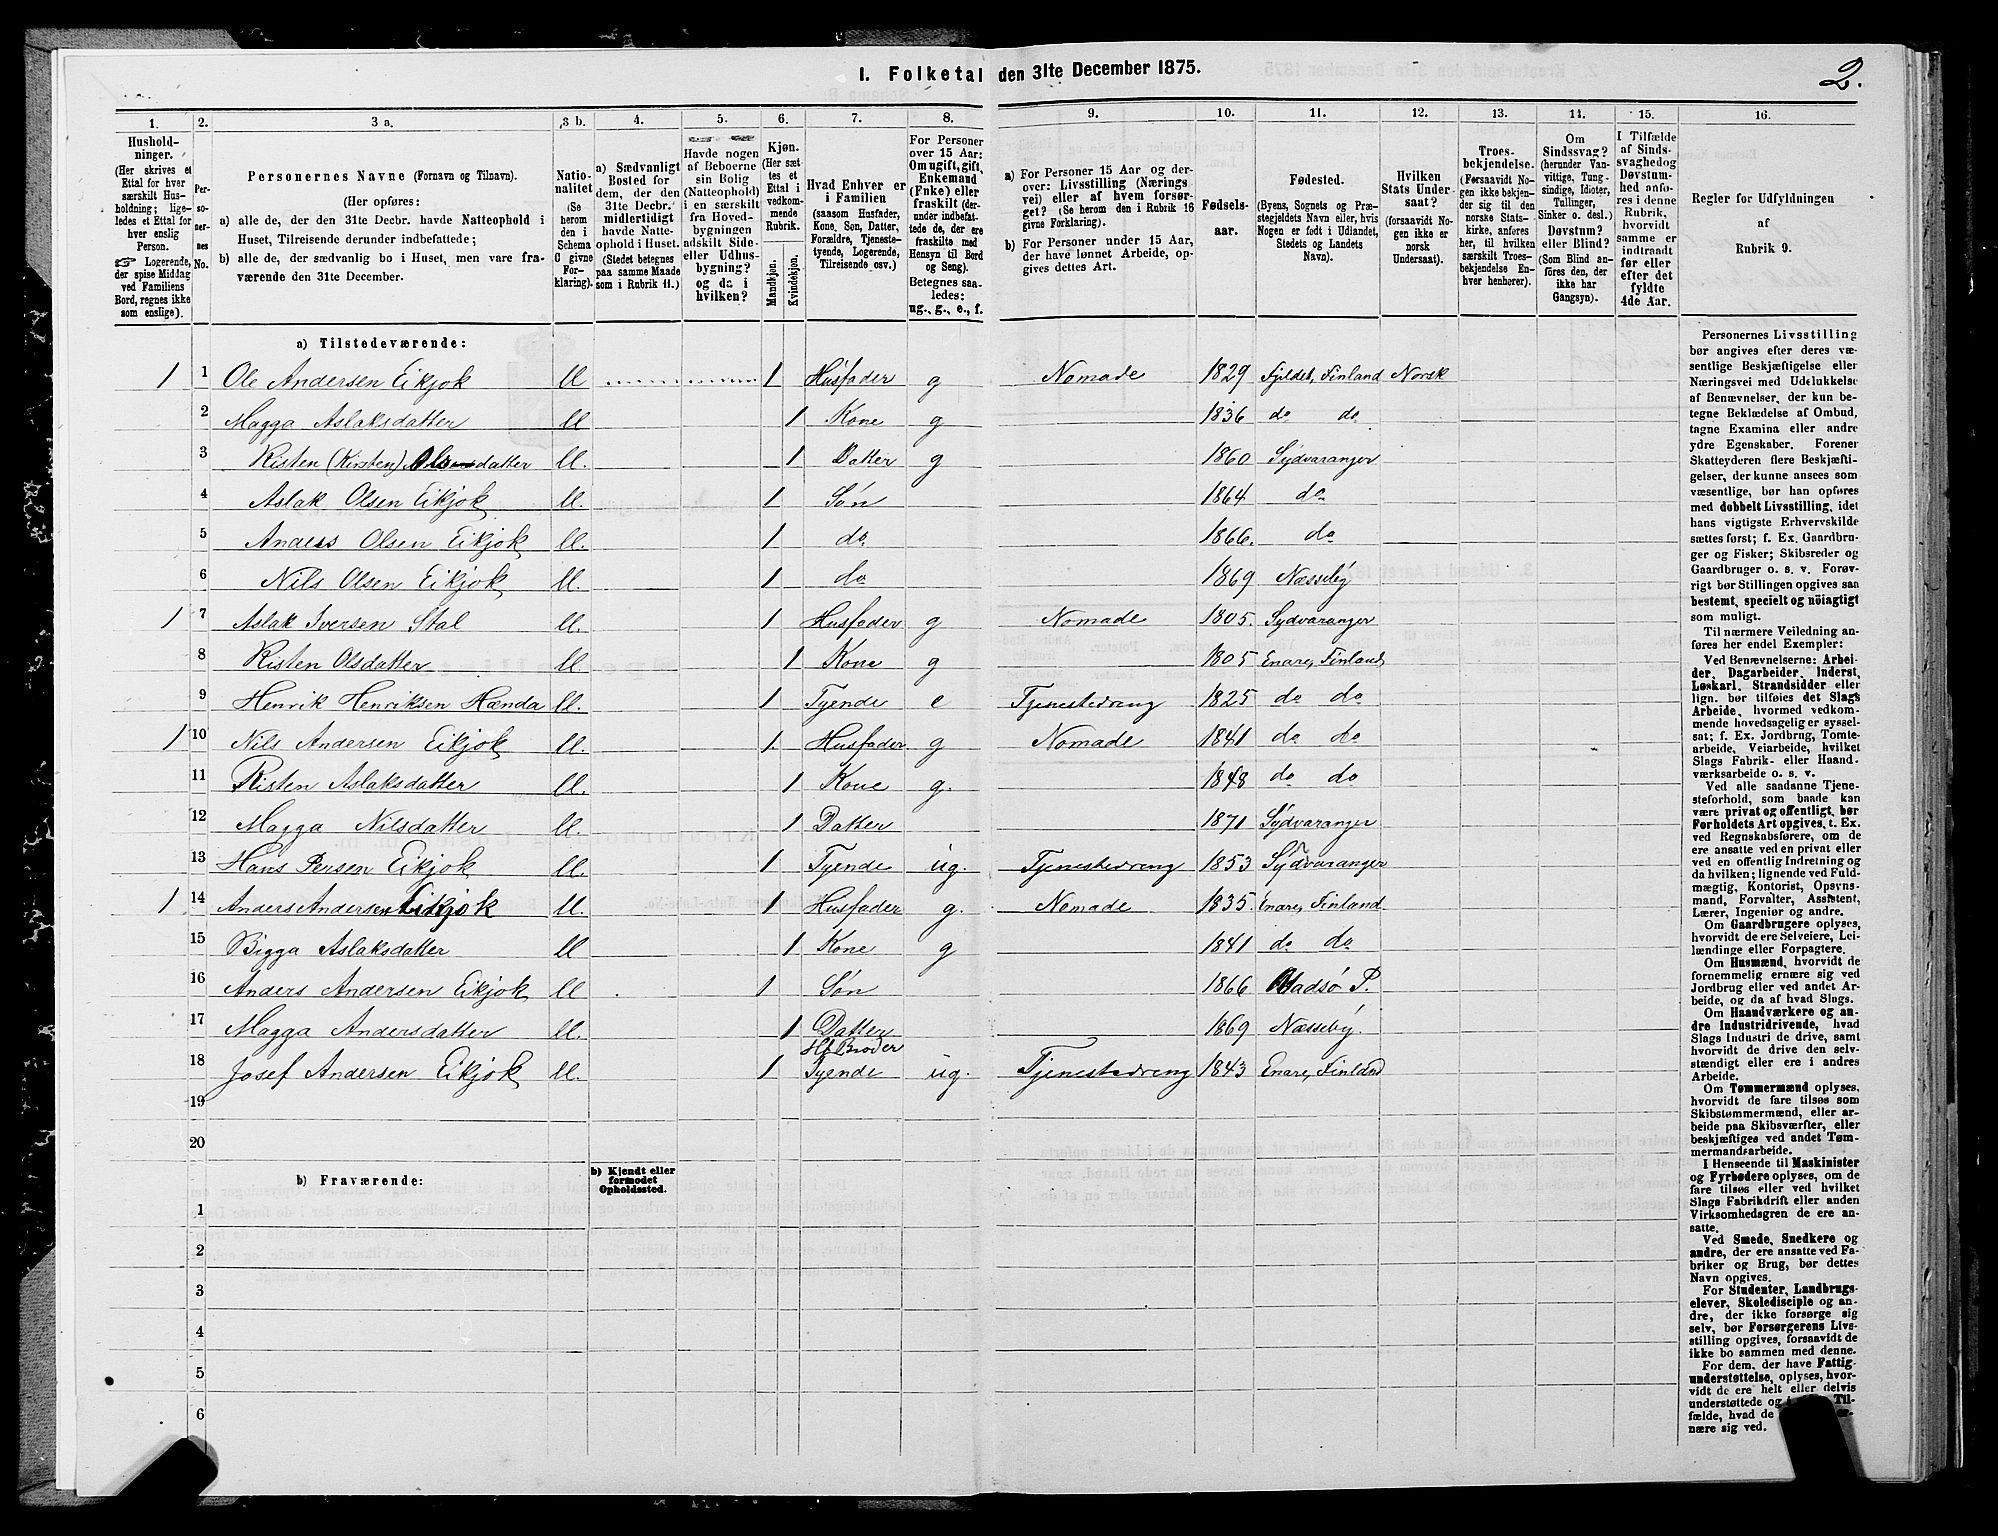 I. Folketal den 31te December 1875.
2.
1. 2. 3 a. 3 b. 4. 5. 6. 7. 8. 9. 10. 11. 12. 13. 14. 15. 16.
Husholdninger. (Her skrives et Ettal for hver særskilt Husholdning; ligeledes et Ettal for hver enslig Person. ☞ Logerende, der spise Middag ved Familiens Bord, regnes ikke som enslige).
Personernes No.
Personernes Navne (Fornavn og Tilnavn).
(Her opføres:
a) alle de, der den 31te Decbr. havde Natteophold i Huset, Tilreisende derunder indbefattede;
b) alle de, der sædvanlig bo i Huset, men vare fraværende den 31te December.
Nationalitet (Se herom den i Schema C givne Forklaring).
a) Sædvanligt Bosted for dem, der den 31te Decbr. midlertidigt havde Natteophold i Huset. (Stedet betegnes paa samme Maade som i Rubrik 11.)
Havde nogen af Beboerne sin Bolig (Natteophold) i en særskilt fra Hovedbygningen adskilt Side- eller Udhusbygning? og da i hvilken?
Kjøn. (Her sættes et Ettal i vedkommende Rubrik.
Mandkjøn. Kvindekjøn.
Hvad Enhver er i Familien (saasom Husfader, Kone, Søn, Datter, Forældre, Tjenestetyende, Logerende, Tilreisende osv.)
For Personer over 15 Aar: Om ugift, gift, Enkemand (Enke) eller fraskilt (derunder indbefattede de, der ere fraskilte med Hensyn til Bord og Seng). Betegnes saaledes: ug., g., e., f.
a) For Personer 15 Aar og derover: Livsstilling (Næringsvei) eller af hvem forsørget? (Se herom den i Rubrik 16 givne Forklaring).
b) For Personer under 15 Aar, der have lønnet Arbeide, opgives dettes Art.
Fødselsaar.
Fødested. (Byens, Sognets og Præstegjeldets Navn eller, hvis Nogen er født i Udlandet, Stedets og Landets Navn).
Hvilken Stats Undersaat? (forsaavidt Nogen ikke er norsk Undersaat).
Troesbekjendelse. (Forsaavidt Nogen ikke bekjender sig til den norske Statskirke, anføres her, til hvilken særskilt Troesbekjendelse Enhver henhører).
Om Sindssvag? (herunder Vanvittige, Tungsindige, Idioter, Tullinger, Sinker o. desl.) Døvstum? eller Blind? (Som Blind anføres den, der ikke har Gangsyn).
I Tilfælde af Sindssvaghed og Døvstumhed anføres i denne Rubrik, hvorvidt samme er indtraadt før eller efter det fyldte 4de Aar.
Regler for Udfyldningen af Rubrik 9.
a) Tilstedeværende:
1 1 Ole Andersen Eikjok ll 1 Husfader g Nomade 1829 Fjeldet, Finland Norsk
2 Magga Aslaksdatter ll 1 Kone g 1836 do do
3 Risten (Kirsten) Olsdatter ll. 1 Datter g 1860 Sydvaranger
4 Aslak Olsen Eikjok ll. 1 Søn 1864 do
5 Anders Olsen Eikjok ll. 1 do 1866. do
6 Nils Olsen Eikjok ll. 1 do 1869 Næsseby
1 7 Aslak Iversen Stal ll. 1 Husfader g Nomade 1805. Sydvaranger
8 Risten Olsdatter ll 1 Kone g 1805 Enare, Finland
9 Henrik Henriksen Hænda ll. 1 Tyende e Tjenestedreng 1825 do do
1 10 Nils Andersen Eikjok ll. 1. Husfader g Nomade 1841 do do
11 Risten Aslaksdatter ll. 1 Kone g. 1848 do do
12 Magga Nilsdatter ll. 1 Datter 1871 Sydvaranger
13 Hans Persen Eikjok ll. 1 Tyende ug. Tjenestedreng 1853 Sydvaranger
1 14 Anders Andersen Eikjok ll. 1 Husfader g. Nomade 1835. Enare, Finland.
15 Bigga Aslaksdatter ll 1 Kone g 1841 do do
16 Anders Andersen Eikjok ll 1 Søn 1866 Vadsø P.
17 Magga Andersdatter ll 1 Datter 1869 Næsseby.
18 Josef Andersen Eikjok ll. 1 Hf Broder Tyende ug. Tjenestedreng 1843 Enare, Finland
19
20
b) Fraværende:
b) Kjendt eller formodet Opholdssted.
1
2
3
4
5
6
Personernes Livsstilling
bør angives efter deres væ-
sentlige Beskjæftigelse eller
Næringsvei med Udelukkelse
af Benævnelser, der kun be-
tegne Beklædelse af Ombud,
tagne Examina eller andre
ydre Egenskaber. Forener
Skatteyderen flere Beskjæfti-
gelser, der kunne ansees som
væsentlige, bør han opføres
med dobbelt Livsstilling, idet
hans vigtigste Erhvervskilde
sættes først; f. Ex. Gaardbru-
ger og Fisker; Skibsreder og
Gaardbruger o. s. v. Forøv-
rigt bør Stillingen opgives saa
bestemt, specielt og nöiagtigt
som muligt.
Til nærmere Veiledning an-
føres her endel Exempler:
Ved Benævnelserne: Arbei-
der, Dagarbeider, Inderst,
Løskarl, Strandsidder eller
lign. bør tilføies det Slags
Arbeide, hvormed vedkom-
mende hovedsagelig er syssel-
sat; f. Ex. Jordbrug, Tomte-
arbeide, Veiarbeide, hvilket
Slags Fabrik- eller Haand-
værksarbeide o. s. v.
Ved alle saadanne Tjene-
steforhold, som baade kan
være privat og offentligt, bør
Forholdets Art opgives, t. Ex.
ved Regnskabsførere, om de
ere ansatte ved en privat eller
ved en offentlig Indretning og
da hvilken; lignende ved Fuld-
mægtig, Kontorist, Opsyns-
mand, Forvalter, Assistent,
Lærer, Ingeniør og andre.
Om Gaardbrugere oplyses,
hvorvidt de ere Selveiere, Lei-
lændinge eller Forpagtere.
Om Husmænd, hvorvidt de
fornemmelig ernære sig ved
Jordbrug eller ved andet Ar-
beide, og da af hvad Slags.
Om Haandværkere og an-
dre Industridrivende, hvad
Slags Industri de drive, samt
hvorvidt de drive den selv-
stændigt eller ere i andres
Arbeide.
Om Tømmermænd oplyses,
hvorvidt de fare tilsøs som
Skibstømmermænd, eller ar-
beide paa Skibsværfter, eller
beskjæftiges ved andet Tøm-
mermandsarbeide.
I Henseende til Maskinister
og Fyrbødere oplyses, om de
fare tilsøs eller ved hvilket
Slags Fabrikdrift eller anden
Virksomhedsgren de ere an-
satte.
Ved Smede, Snedkere og
andre, der ere ansatte ved Fa-
briker og Brug, bør dettes
Navn opgives.
For Studenter, Landbrugs-
elever, Skoledisciple og an-
dre, der ikke forsørge sig
selv, bør Forsørgerens Livs-
stilling opgives, forsaavidt de
ikke bo sammen med denne.
For dem, der have Fattig-
understøttelse, oplyses, hvor-
vidt de ere helt eller delvis
understøttede og i Til-
fælde, hvad de
nære sig ved.